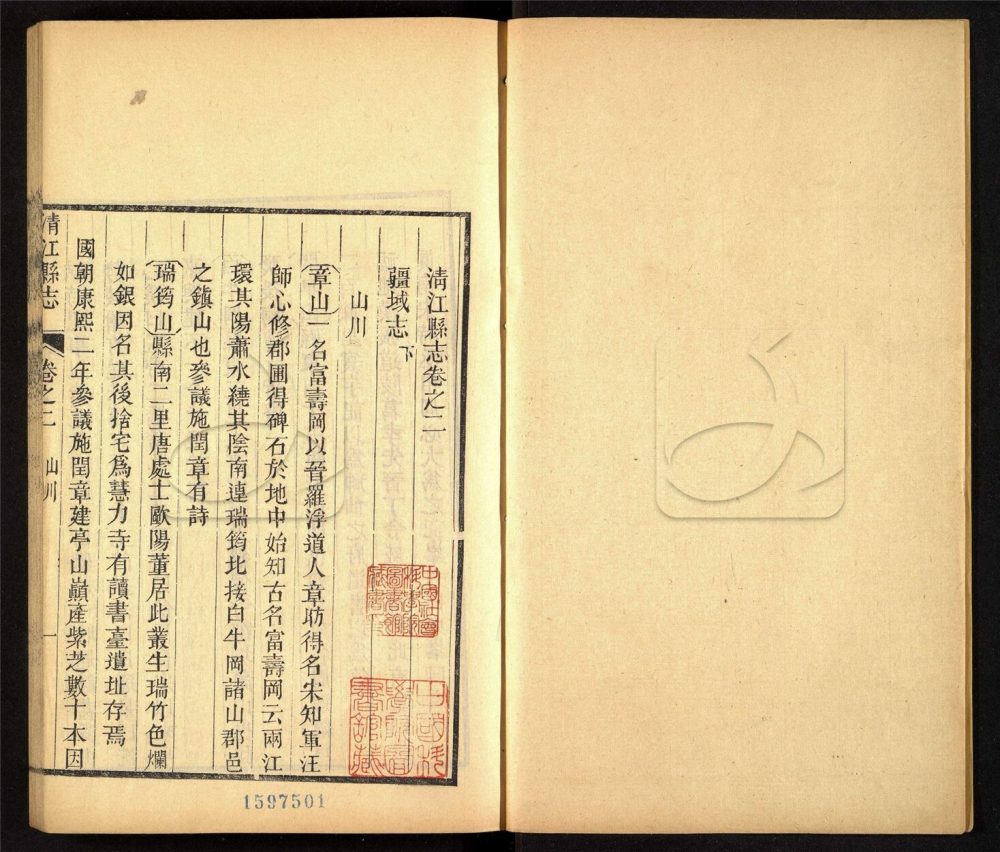 清江縣志卷之二
疆域志下
山川
章山一名富壽岡以晉羅浮道人章昉得名宋知軍汪
師心修郡圃得碑石於地中始知古名富壽岡云兩江
環其陽蕭水繞其陰南連瑞筠北接白牛岡諸山郡邑
之鎮山也參議施閏章有詩
瑞筠山縣南二里唐處士歐陽董居此叢生瑞竹色爛
如銀因名其後捨宅爲慧力寺有讀書臺遺址存焉
國朝康熙二年參議施閏章建亭山巔產紫芝數十本因
清江縣志 卷之二 山川 一
中國社會科學院圖書館藏書
中國科學院圖書館藏
1597501